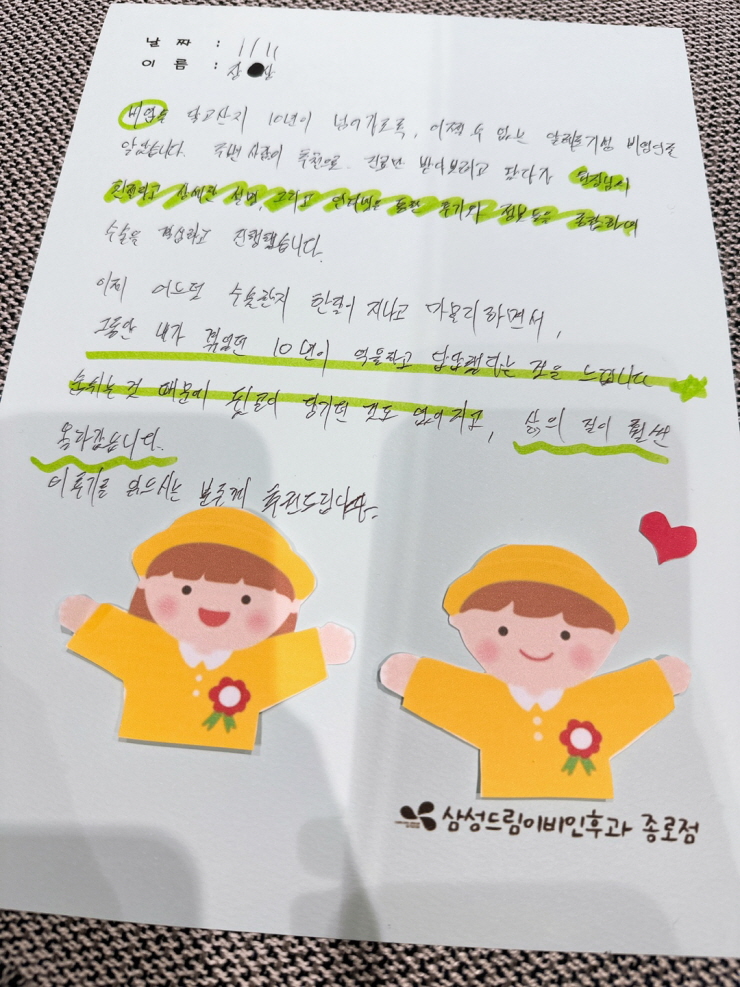 날 짜 : 1/11
이 름 : 장 상
비염을 달고산지 10년이 넘어가도록, 어쩔 수 없는 알레르기성 비염인줄
알았습니다. 주변 사람이 추천으로 진료만 받아보려고 왔다가 원장님의
친절하고 상세한 설명, 그리고 인터넷을 통한 후기와 정보 등을 종합하여
수술을 결심하고 진행했습니다.
이제 어느덧 수술한지 한달이 지나고 마무리하면서,
그동안 내가 겪었던 10년이 억울하고 답답했다는 것을 느낍니다
숨쉬는 것 때문에 뒷골이 당기던 것도 없어지고, 삶의 질이 훨씬
올라갔습니다.
이 후기를 읽으시는 분들께 추천드립니다.
삼성드림이비인후과 종로점